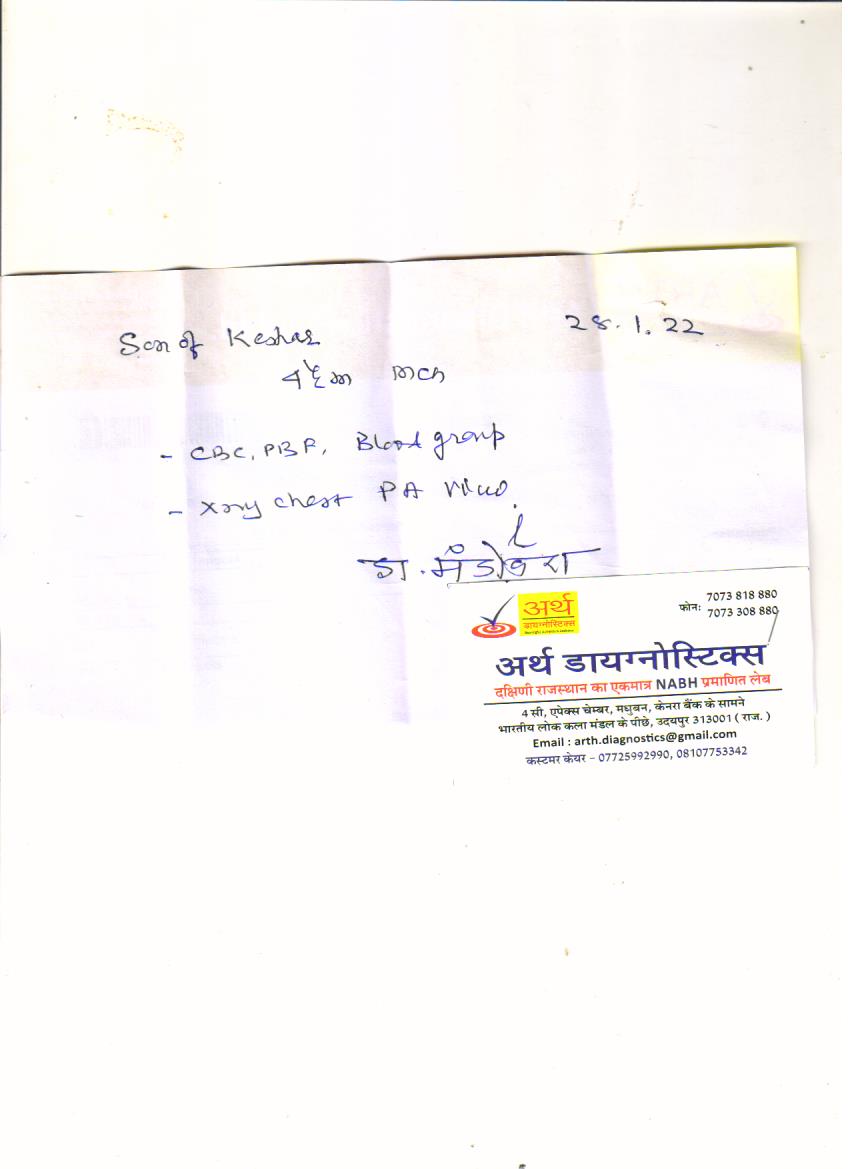 Son of Keshar
28.1.22
4 mch
- CBC, PBF, Blood group
- Xray chest PA view.
डा. मंडोवरा
अर्थ
डायग्नोस्टिक्स
फोन: 7073 818 880
7073 308 880
अर्थ डायग्नोस्टिक्स
दक्षिणी राजस्थान का एकमात्र NABH प्रमाणित लेब
4 सी, एपेक्स चेम्बर, मधुबन, केनरा बैंक के सामने
भारतीय लोक कला मंडल के पीछे, उदयपुर 313001 ( राज. )
Email : arth.diagnostics@gmail.com
कस्टमर केयर – 07725992990, 08107753342